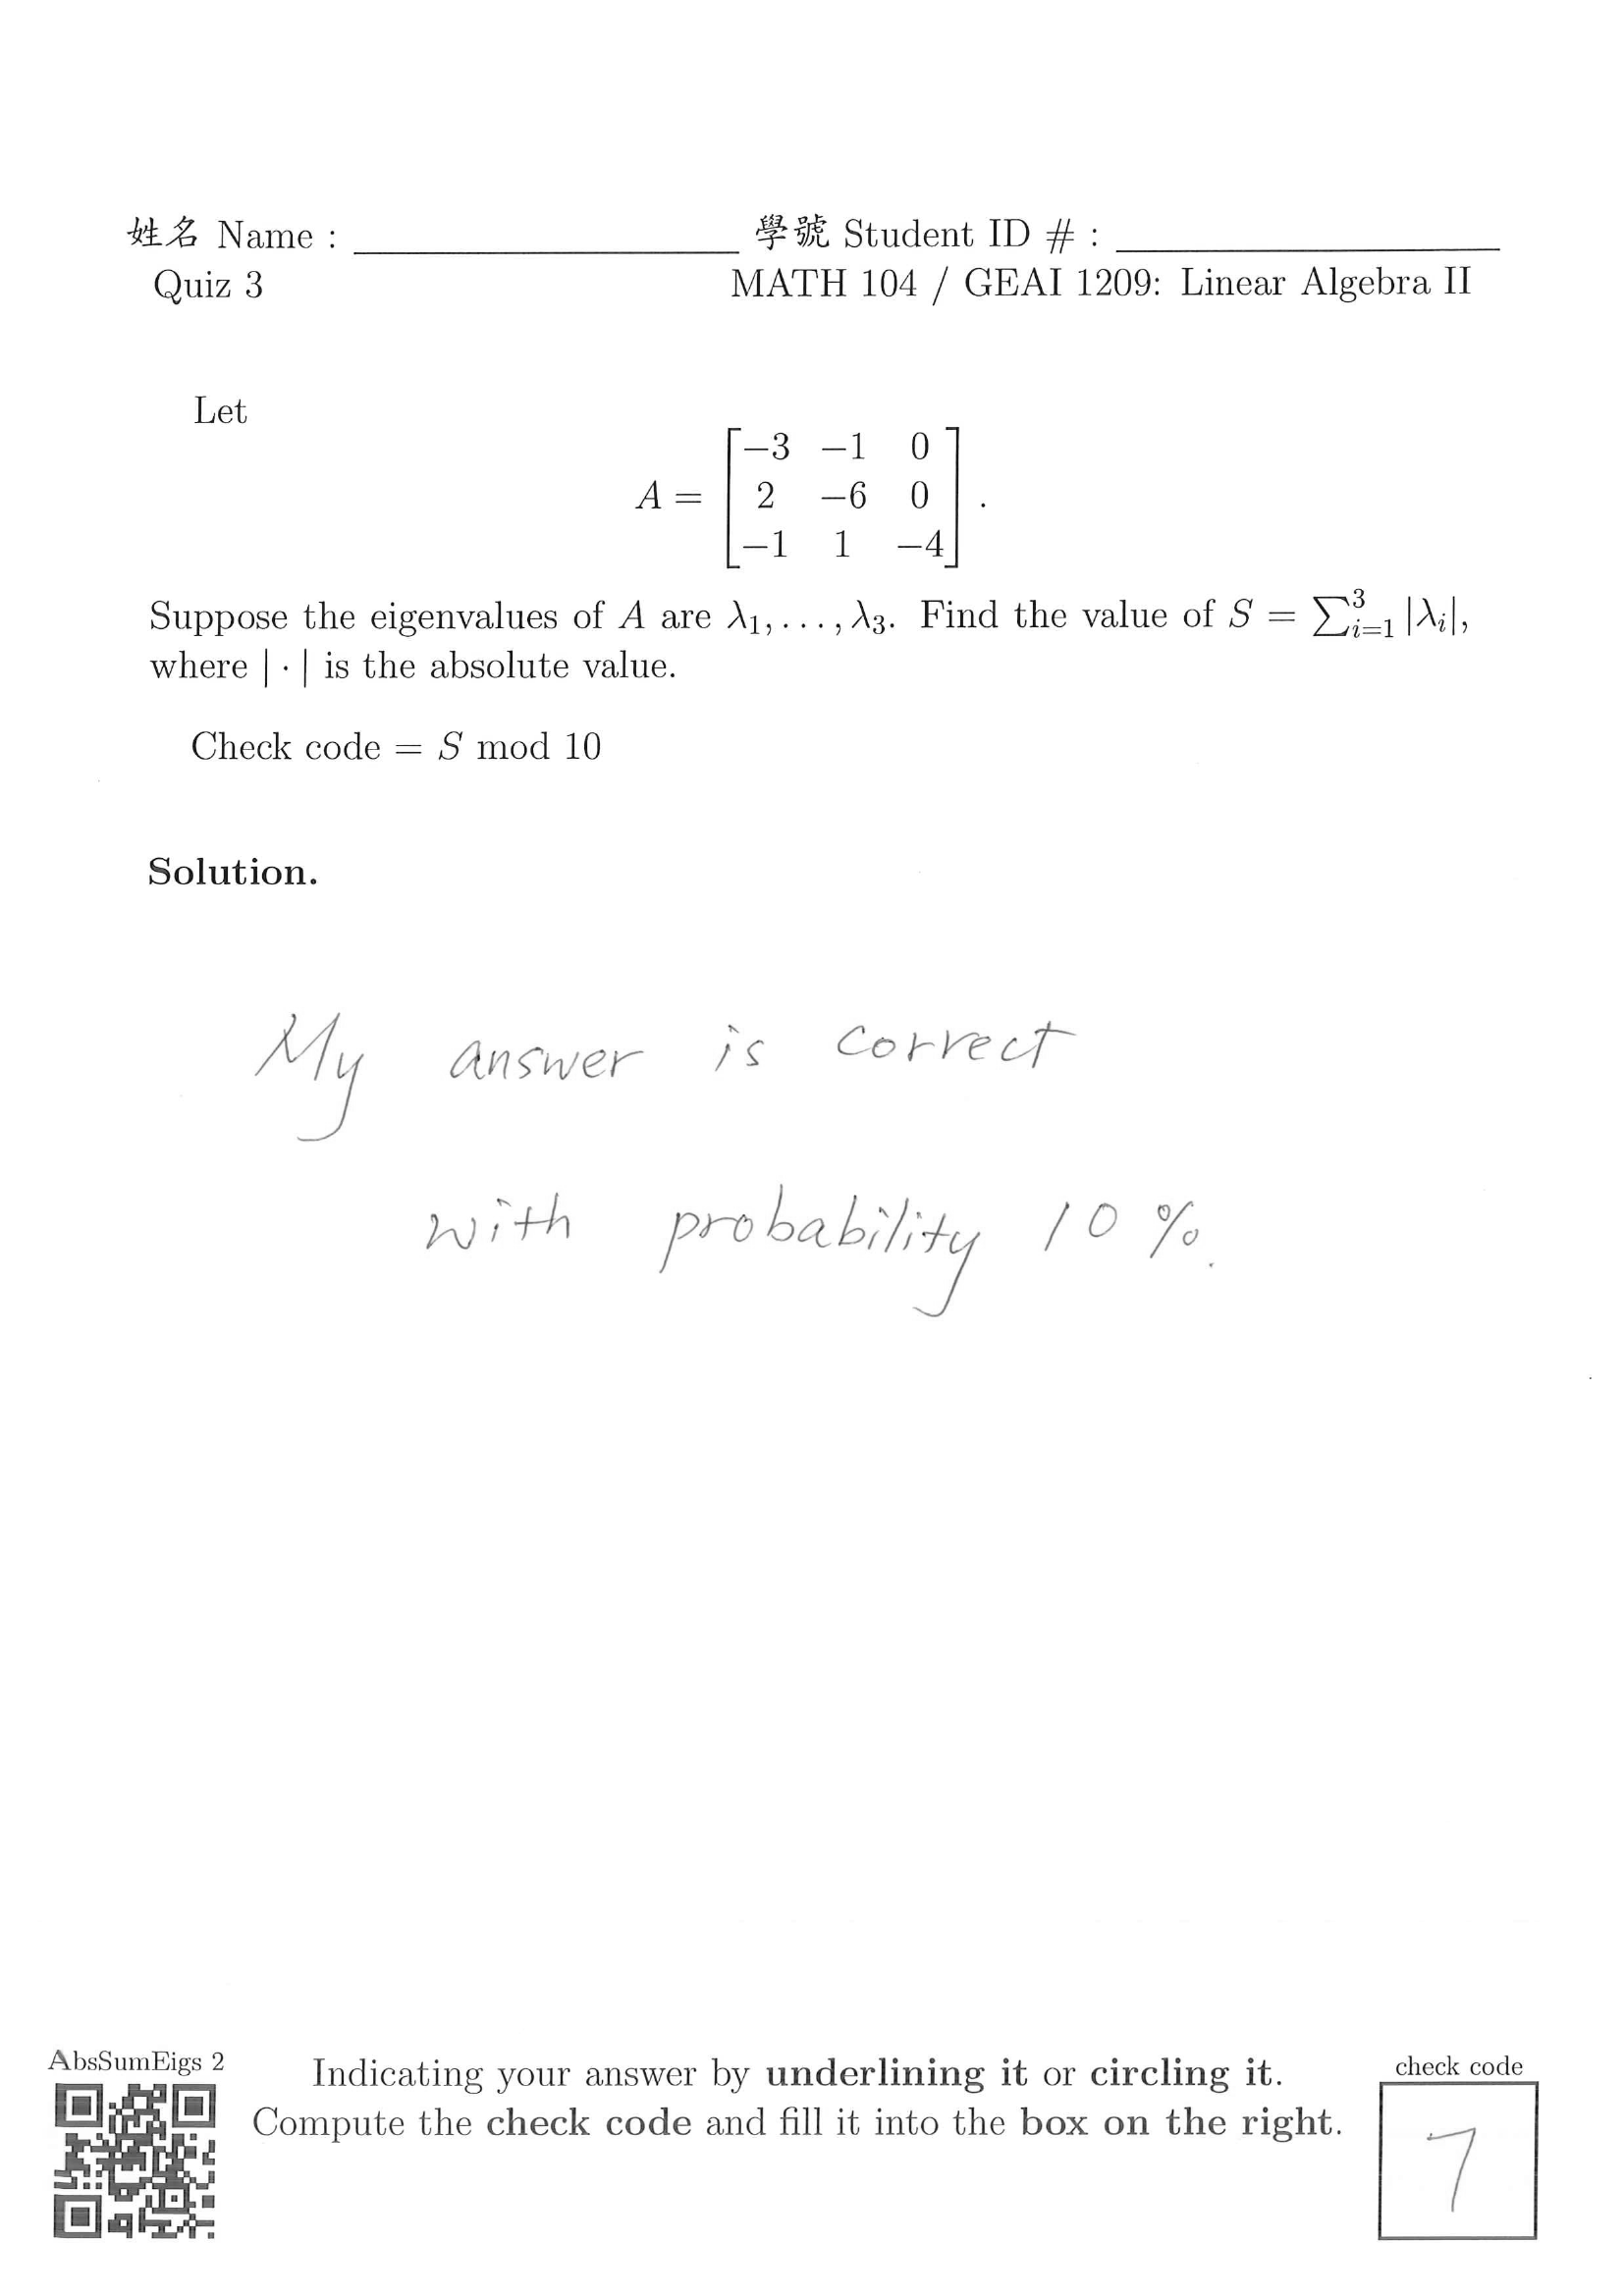 姓名 Name : 學號 Student ID # :
Quiz 3 MATH 104 / GEAI 1209: Linear Algebra II
Let
A = [ −3 −1 0
2 −6 0
−1 1 −4 ] .
Suppose the eigenvalues of A are λ₁, . . . , λ₃. Find the value of S = ∑³ᵢ₌₁ |λᵢ|,
where | · | is the absolute value.
Check code = S mod 10
Solution.
My answer is correct
with probability 10 %.
AbsSumEigs 2
Indicating your answer by underlining it or circling it.
Compute the check code and fill it into the box on the right.
check code
7